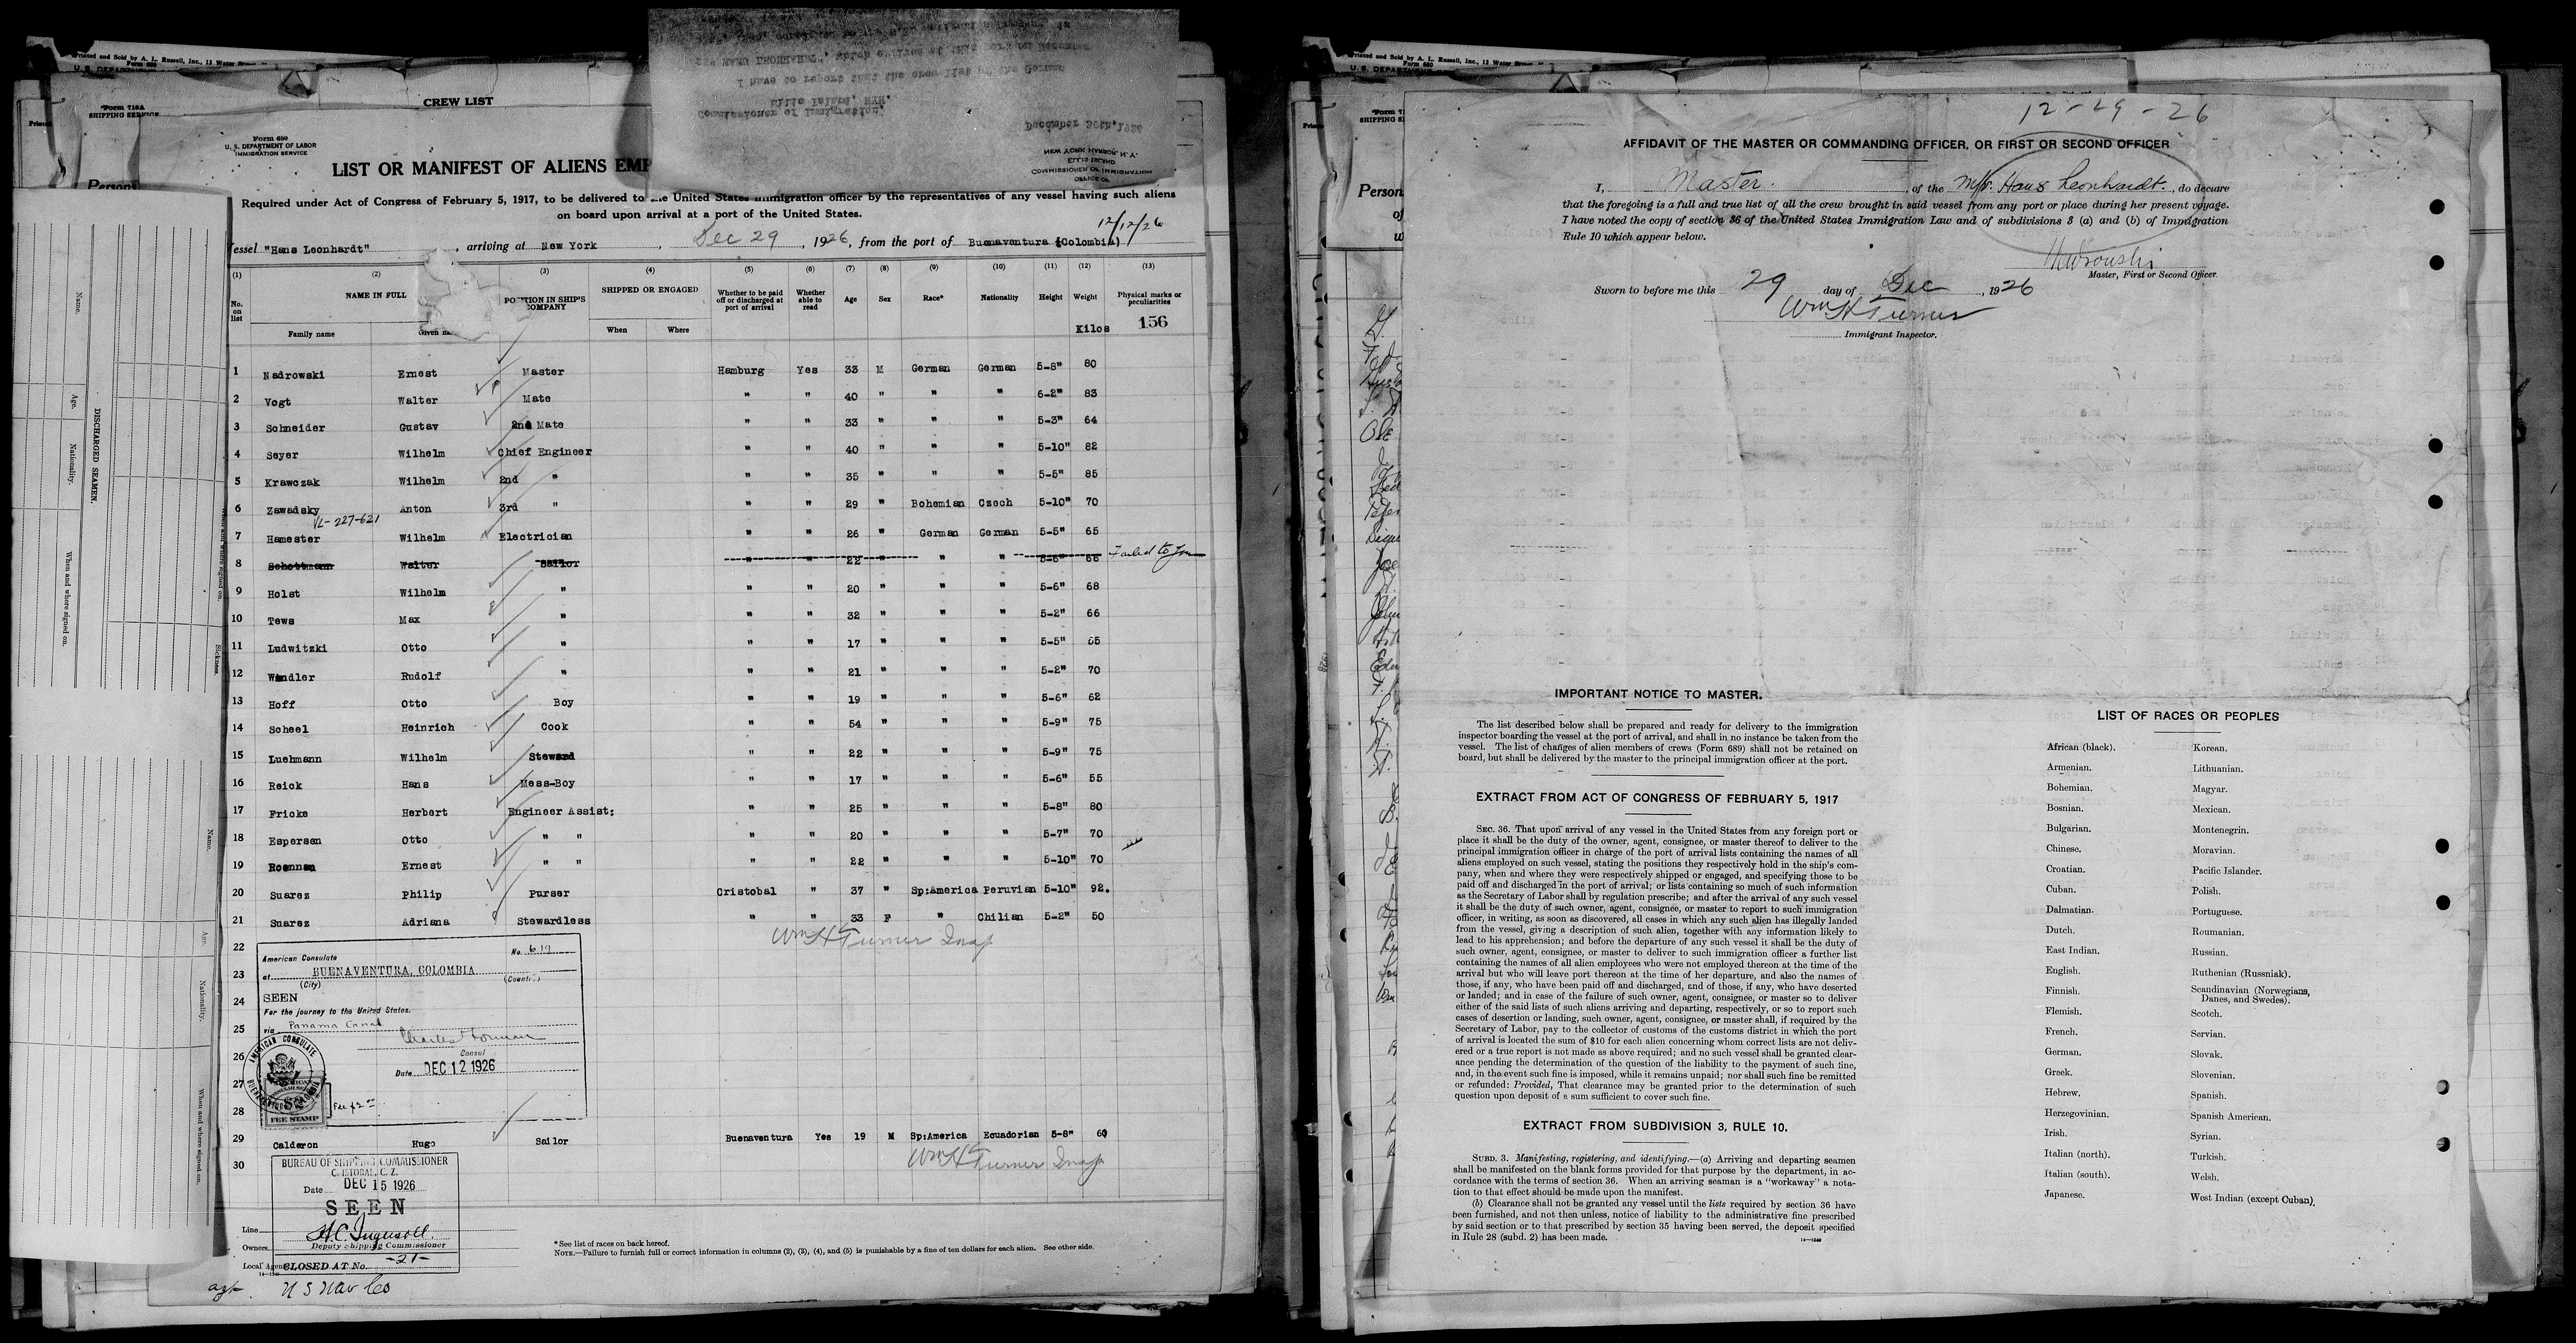 Printed and Sold by A. L. Russell, Inc., 13 Water
Form 680
U. S. DEPARTMENT
Form 710A
SHIPPING SERVICE
CREW LIST
Persons
Form 680
U. S. DEPARTMENT OF LABOR
IMMIGRATION SERVICE
LIST OR MANIFEST OF ALIENS EMP
OFFICE OF
COMMISSIONER OF IMMIGRATION
ELLIS ISLAND
NEW YORK HARBOR, N. Y.
December 30th, 1926
Commissioner of Immigration,
Ellis Island, NYH.
I have to report that the crew list of the German
HANS LEONHARDT", which arrived at this port on December
Required under Act of Congress of February 5, 1917, to be delivered to the United States immigration officer by the representatives of any vessel having such aliens
on board upon arrival at a port of the United States.
12/12/26
essel "Hans Leonhardt", arriving at New York, Dec 29, 1926, from the port of Buenaventura (Colombia)
(1) (2) (3) (4) (5) (6) (7) (8) (9) (10) (11) (12) (13)
No. on list NAME IN FULL Family name Given na POSITION IN SHIP'S COMPANY SHIPPED OR ENGAGED When Where Whether to be paid off or discharged at port of arrival Whether able to read Age Sex Race* Nationality Height Weight Kilos Physical marks or peculiarities
156
1 Nadrowski Ernest Master Hamburg Yes 33 M German German 5-8" 80
2 Vogt Walter Mate " " 40 " " " 6-2" 83
3 Schneider Gustav 2nd Mate " " 33 " " " 5-3" 64
4 Seyer Wilhelm Chief Engineer " " 40 " " " 5-10" 82
5 Krawczak Wilhelm 2nd " " " 35 " " " 5-5" 85
6 Zawadsky Anton 3rd " " " 29 " Bohemian Czech 5-10" 70
VL-227-621
7 Hamester Wilhelm Electrician " " 26 " German German 5-5" 65
8 Schottmann Walter Sailor " " 22 " " " 5-6" 66 Failed to Join
9 Holst Wilhelm " " " 20 " " " 5-6" 68
10 Tews Max " " " 32 " " " 5-2" 66
11 Ludwitzki Otto " " " 17 " " " 5-5" 65
12 Windler Rudolf " " " 21 " " " 5-2" 70
13 Hoff Otto Boy " " 19 " " " 5-6" 62
14 Scheel Heinrich Cook " " 54 " " " 5-9" 75
15 Luehmann Wilhelm Steward " " 22 " " " 5-9" 75
16 Reick Hans Mess-Boy " " 17 " " " 5-6" 55
17 Fricke Herbert Engineer Assist: " " 25 " " " 5-8" 80
18 Espersen Otto " " " " 20 " " " 5-7" 70
19 Roennan Ernest " " " " 22 " " " 5-10" 70
20 Suarez Philip Purser Cristobal " 37 " Sp:America Peruvian 5-10" 92.
21 Suarez Adriana Stewardless " " 33 F " Chilian 5-2" 50
22
Wm H Turner Insp
American Consulate No. 619
23 at BUENAVENTURA, COLOMBIA
(City) (Country)
24 SEEN
For the journey to the United States.
25 via Panama Canal
Charles Forman
26 Consul
Date DEC 12 1926
AMERICAN CONSULATE
BUENAVENTURA COLOMBIA
27
$2
FEE STAMP
28
29 Calderon Hugo Sailor Buenaventura Yes 19 M Sp:America Ecuadorian 5-8" 60
30
Wm H Turner Insp
BUREAU OF SHIPPING COMMISSIONER
CRISTOBAL, C. Z.
Date DEC 15 1926
SEEN
H.C. Ingersoll.
Deputy Shipping Commissioner
CLOSED AT No. -21-
Line
Owners
Local Agent
agt U S Nav Co
* See list of races on back hereof.
NOTE.—Failure to furnish full or correct information in columns (2), (3), (4), and (5) is punishable by a fine of ten dollars for each alien. See other side.
DISCHARGED SEAMEN.
Name.
Age.
Nationality.
When and where signed on.
Sickness.
Name.
Age.
Nationality.
When and where signed on.
Printed and Sold by A. L. Russell, Inc., 13 Water
Form 680
U. S. DEPARTMENT
Person
12-29-26
AFFIDAVIT OF THE MASTER OR COMMANDING OFFICER, OR FIRST OR SECOND OFFICER
I, Master., of the M/S. Hans Leonhardt., do declare
that the foregoing is a full and true list of all the crew brought in said vessel from any port or place during her present voyage.
I have noted the copy of section 36 of the United States Immigration Law and of subdivisions 3 (a) and (b) of Immigration
Rule 10 which appear below.
Master, First or Second Officer.
Sworn to before me this 29 day of Dec, 1926
Wm H Turner
Immigrant Inspector.
IMPORTANT NOTICE TO MASTER.
The list described below shall be prepared and ready for delivery to the immigration
inspector boarding the vessel at the port of arrival, and shall in no instance be taken from the
vessel. The list of changes of alien members of crews (Form 689) shall not be retained on
board, but shall be delivered by the master to the principal immigration officer at the port.
EXTRACT FROM ACT OF CONGRESS OF FEBRUARY 5, 1917
SEC. 36. That upon arrival of any vessel in the United States from any foreign port or
place it shall be the duty of the owner, agent, consignee, or master thereof to deliver to the
principal immigration officer in charge of the port of arrival lists containing the names of all
aliens employed on such vessel, stating the positions they respectively hold in the ship's com-
pany, when and where they were respectively shipped or engaged, and specifying those to be
paid off and discharged in the port of arrival; or lists containing so much of such information
as the Secretary of Labor shall by regulation prescribe; and after the arrival of any such vessel
it shall be the duty of such owner, agent, consignee, or master to report to such immigration
officer, in writing, as soon as discovered, all cases in which any such alien has illegally landed
from the vessel, giving a description of such alien, together with any information likely to
lead to his apprehension; and before the departure of any such vessel it shall be the duty of
such owner, agent, consignee, or master to deliver to such immigration officer a further list
containing the names of all alien employees who were not employed thereon at the time of the
arrival but who will leave port thereon at the time of her departure, and also the names of
those, if any, who have been paid off and discharged, and of those, if any, who have deserted
or landed; and in case of the failure of such owner, agent, consignee, or master so to deliver
either of the said lists of such aliens arriving and departing, respectively, or so to report such
cases of desertion or landing, such owner, agent, consignee, or master shall, if required by the
Secretary of Labor, pay to the collector of customs of the customs district in which the port
of arrival is located the sum of $10 for each alien concerning whom correct lists are not deliv-
ered or a true report is not made as above required; and no such vessel shall be granted clear-
ance pending the determination of the question of the liability to the payment of such fine,
and, in the event such fine is imposed, while it remains unpaid; nor shall such fine be remitted
or refunded: Provided, That clearance may be granted prior to the determination of such
question upon deposit of a sum sufficient to cover such fine.
EXTRACT FROM SUBDIVISION 3, RULE 10.
SUBD. 3. Manifesting, registering, and identifying.—(a) Arriving and departing seamen
shall be manifested on the blank forms provided for that purpose by the department, in ac-
cordance with the terms of section 36. When an arriving seaman is a "workaway" a nota-
tion to that effect should be made upon the manifest.
(b) Clearance shall not be granted any vessel until the lists required by section 36 have
been furnished, and not then unless, notice of liability to the administrative fine prescribed
by said section or to that prescribed by section 35 having been served, the deposit specified
in Rule 28 (subd. 2) has been made.
LIST OF RACES OR PEOPLES
African (black). Korean.
Armenian. Lithuanian.
Bohemian. Magyar.
Bosnian. Mexican.
Bulgarian. Montenegrin.
Chinese. Moravian.
Croatian. Pacific Islander.
Cuban. Polish.
Dalmatian. Portuguese.
Dutch. Roumanian.
East Indian. Russian.
English. Ruthenian (Russniak).
Finnish. Scandinavian (Norwegians, Danes, and Swedes).
Flemish. Scotch.
French. Servian.
German. Slovak.
Greek. Slovenian.
Hebrew. Spanish.
Herzegovinian. Spanish American.
Irish. Syrian.
Italian (north). Turkish.
Italian (south). Welsh.
Japanese. West Indian (except Cuban).